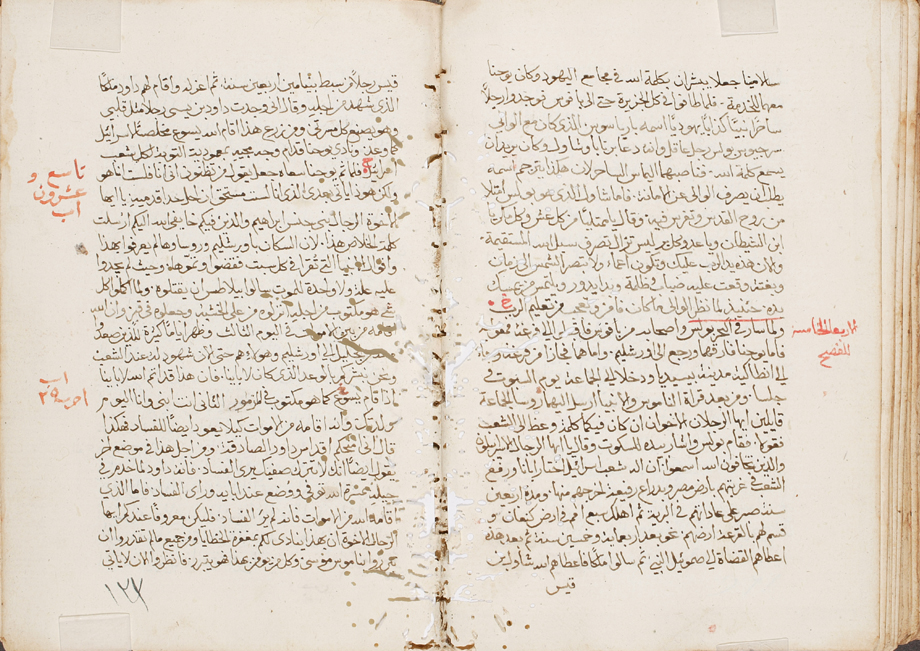 سلامينا جعلا يبشران بكلمة الله في مجامع اليهود وكان يوحنا
معهما للخدمة فلما طافوا في كل الجزيرة حتى الى بافوس فوجدوا رجلا
ساحرا نبيا كذابا يهوديا اسمه باريسوس الذي كان مع الوالي
سرجيوس بولس رجل عاقل وانه دعا برنابا وشاول وكان يريدان
يسمع كلمة الله فناصبهما الياس الساحر لان هكذا يترجم اسمه
يطلب ان يصرف الوالي عن الامانة فاما شاول الذي هو بولس امتلا
من روح القدس وتفرس فيه وقال يا ممتليا من كل غش وكل مكر يا
ابن الشيطان ويا عدو كل بر ليس تزال تصرف سبل الله المستقيمة
والان هذه يد الرب عليك وتكون اعمى ولا تبصر الشمس الى زمان
وبغتة وقعت عليه ضبابة وظلمة وبدا يدور ويلتمس من يمسك
يده حينئذ لما نظر الوالي ما كان فامن وتعجب من تعليم الرب
ولما سار في البحر بولس واصحابه من بافوس
فاما يوحنا فارقهما ورجع الى اورشليم واما هما فجازا من برجة وجاءا
الى انطاكية مدينة بيسيديا ودخلا الى الجماعة يوم السبوت
جلسا ومن بعد قراة الناموس والانبيا ارسل اليهما روسا الجماعة
قايلين ايها الرجلان الاخوان ان كان فيكما كلمة وعظ الى الشعب
فقولا فقام بولس واشار بيده للسكوت وقال يا ايها الرجال الاسرائيليون
والذين يخافون الله اسمعوا ان اله شعب اسرائيل اختار ابانا ورفع
الشعب في غربتهم بارض مصر وبذراع رفيعة اخرجهم منها ومدة اربعين
سنة صبر على عاداتهم في البرية ثم اهلك سبع امم في ارض كنعان و
قسم لهم بالقرعة ارضهم نحو بعد اربعماية وخمسين سنة ثم بعد هذه
اعطاهم القضاة الى صموئيل النبي ثم سالوا ملكا فاعطاهم الله شاول ابن
قيس
الاربعا الخامسة
للفصح
قيس رجلا من سبط بنيامين اربعين سنة ثم اعزله واقام لهم داود ملكا
الذي شهد من اجله وقال اني وجدت داود بن يسى رجلا مثل قلبي
وهو يصنع كل مسرتي ومن زرع هذا اقام الله يسوع مخلصا لاسرائيل
كما وعد ينادي يوحنا قدام وجه مجيه بمعمودية التوبة لكل شعب
اسرائيل فلما تم يوحنا سعاه جعل يقول من تظنون اني انا فلست انا هو
ولكن هوذا ياتي بعدي الذي انا لست مستحق ان احل حذا قدميه يا ايها
الاخوة الرجال بني جنس ابراهيم والذين فيكم خايفي الله اليكم ارسلت
كلمة الخلاص هذا لان السكان باورشليم وروساها لم يعرفوا بهذا
واقوال الانبيا التي تقرا في كل سبت فقضوا وتموها وحيث لم يجدوا
عليه علة ولا واحدة للموت سالوا بيلاطس ان يقتلوه ولما اكملوا كل
شي هو مكتوب من اجله انزلوه من على الخشبة وجعلوه في قبر وان الله
اقامه من بين الاموات في اليوم الثالث وظهر اياما كثيرة للذين صعدوا
من الجليل الى اورشليم وهولاء هم حتى الان شهود له عند الشعب
ونحن نبشركم بالوعد الذي كان لابائنا فان هذا قد اتمه الله لابنائنا
اذا قام يسوع كما هو مكتوب في المزمور الثاني انت ابني وانا اليوم
ولدتك وانه اقامه من الاموات كيلا يعود ايضا للفساد فهكذا
قال اني منحكم اقداس داود الصادقة ومن اجل هذا في موضع اخر
يقول ايضا انك لا تترك صفيك يرى الفساد فانه داود لما خدم في
جيله مسرة الله توفي ووضع عند ابايه وراى الفساد فاما الذي
اقامه الله من الاموات فانه لم ير الفساد فليكن معروفا عندكم ايها
الرجال الاخوة ان بهذا ينادى لكم مغفرة الخطايا ومن جميع مالم تقدروا ان
تتبرروا بناموس موسى وكل من يومن بهذا فهو يتبرر فانظروا الان لا ياتي
تاسع و
عشرون
اب
١٢٧